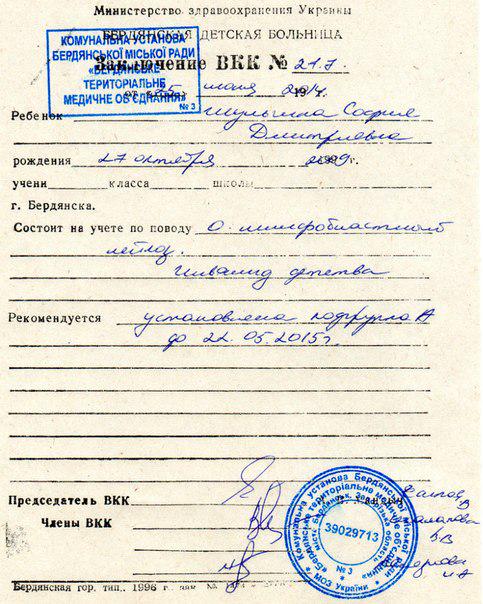 Министерство здравоохранения Украины
БЕРДЯНСКАЯ ДЕТСКАЯ БОЛЬНИЦА
КОМУНАЛЬНА УСТАНОВА
БЕРДЯНСЬКОЇ МІСЬКОЇ РАДИ
«БЕРДЯНСЬКЕ
ТЕРИТОРІАЛЬНЕ
МЕДИЧНЕ ОБ'ЄДНАННЯ»
№ 3
Заключение ВКК № 217
от
Ребенок София
Дмитриевна
рождения 27 октября 2009г.
учени класса школы
г. Бердянска.
Состоит на учете по поводу О. лимфобластный
лейкоз.
Инвалид детства
Рекомендуется установлена подгруппа А
до 22.05.2015г
Председатель ВКК
Члены ВКК
Комунальна установа Бердянської міської ради
«Бердянське територіальне медичне об'єднання»
39029713
№ 3
МОЗ України
Бердянская гор. тип., 1996 г., зак. №